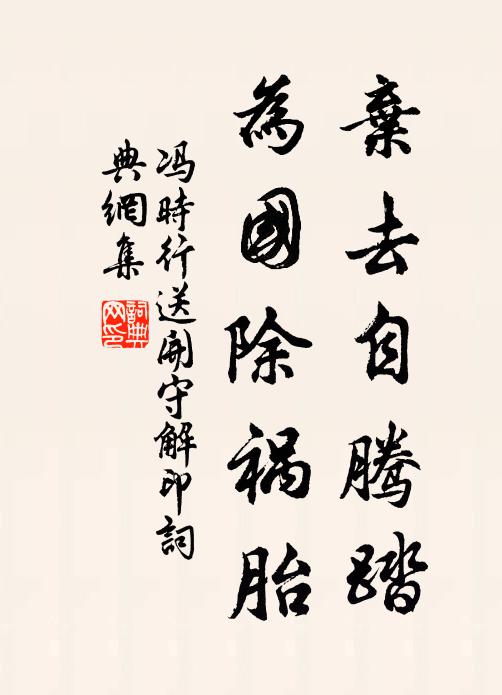 棄去自騰踏
為國除禍胎
冯時行送開守解印詞
典網集
詞典
网印